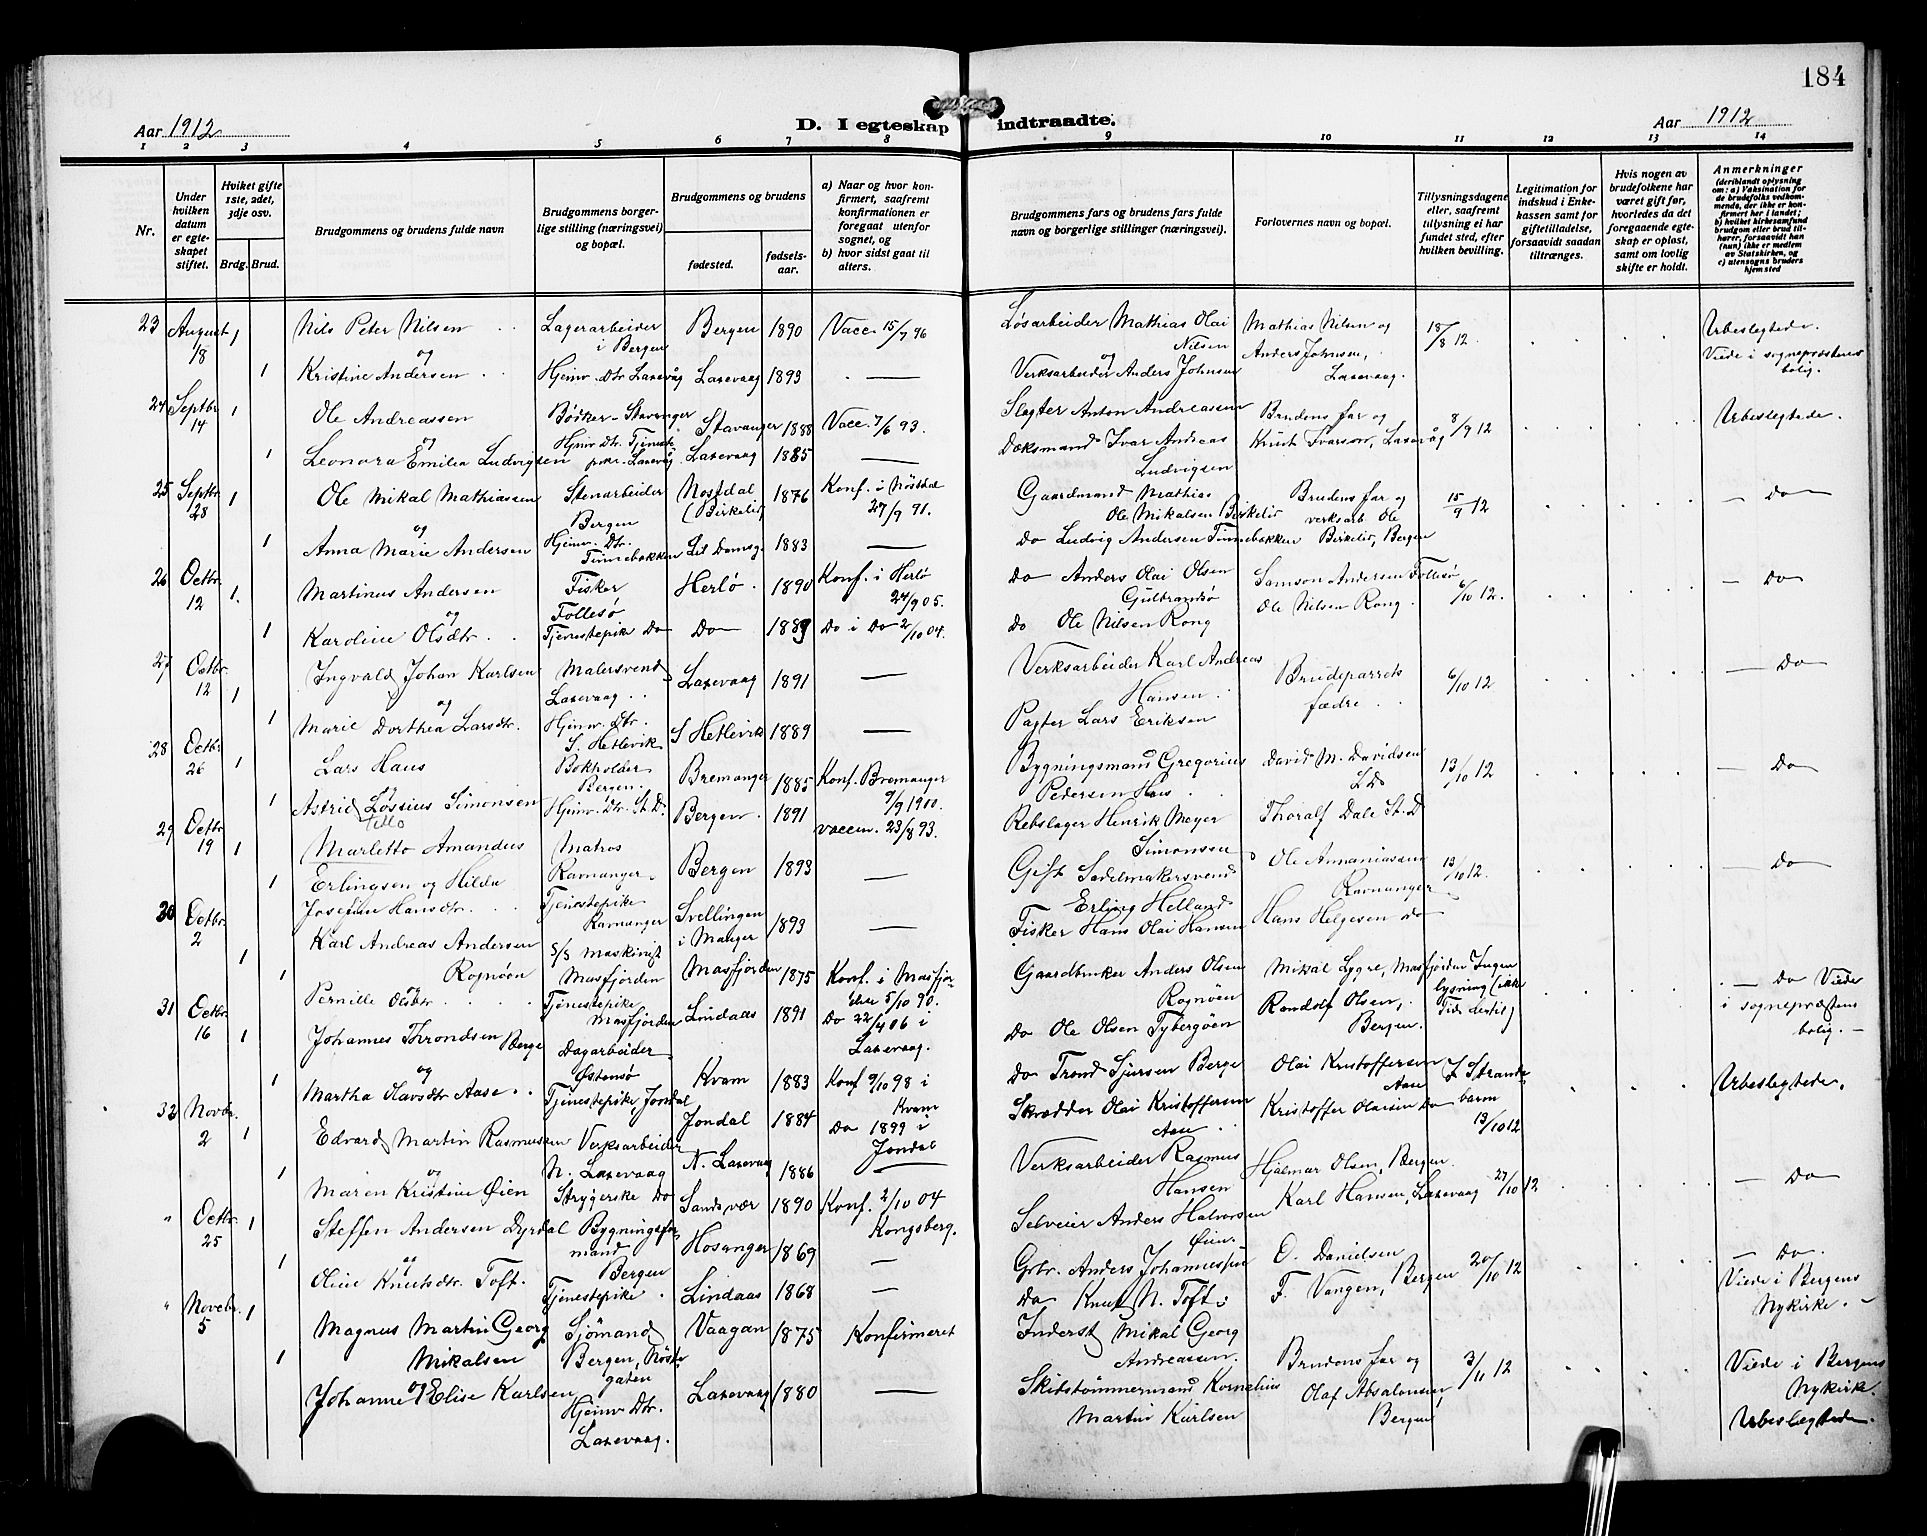 184
Aar 1912
D. I egteskap indtraadte.
Aar 1912
1 2 3 4 5 6 7 8 9 10 11 12 13 14
Nr.
Under hvilken datum er egteskapet stiftet.
Hviket gifte 1ste, 2det, 3dje osv.
Brdg. Brud.
Brudgommens og brudens fulde navn
Brudgommens borgerlige stilling (næringsvei) og bopæl.
Brudgommens og brudens
fødested.
fødselsaar.
a) Naar og hvor konfirmert, saafremt konfirmationen er foregaat utenfor sognet, og b) hvor sidst gaat til alters.
Brudgommens fars og brudens fars fulde navn og borgerlige stillinger (næringsvei).
Forlovernes navn og bopæl.
Tillysningsdagene eller, saafremt tillysning ei har fundet sted, efter hvilken bevilling.
Legitimation for indskud i Enkekassen samt for giftetilladelse, forsaavidt saadan tiltrænges.
Hvis nogen av brudefolkene har været gift før, hvorledes da det foregaaende egteskap er opløst, samt om lovlig skifte er holdt.
Anmerkninger (deriblandt oplysning om: a) Vaksination for de brudefolks vedkommende, der ikke er konfirmert her i landet; b) hvilket kirkesamfund brudgom eller brud tilhører, forsaavidt han (hun) ikke er medlem av Statskirken, og c) utensogns bruders hjemsted
23 August 18 1 Nils Peter Nilsen Lagerarbeider i Bergen Bergen 1890 Vacc. 15/7 96 Løsarbeider Mathias Olai Nilsen Mathias Nilsen og Anders Johnsen, Laxevaag. 18/8 12 Ubeslegtede. Viede i sogneprestens bolig.
og
1 Kristine Andersen Hjemv. Dtr. Laxevåg Laxevaag 1893 — Verksarbeider Anders Johnsen
24 Septbr. 14 1 Ole Andreassen Bødker Stavanger Stavanger 1888 Vacc. 7/6 93. Slagter Anton Andreassen Brudens far og Knut Ivarson, Laxevåg 8/9 12 Ubeslegtede.
og
1 Leonora Emilea Ludvigsen Hjemv. Dtr. Laxevåg. Laxevaag 1885 — Dæksmand Ivar Andreas Ludvigsen
25 Septbr. 28 1 Ole Mikal Mathiassen Stenarbeider Bergen Nostdal (Birkelid) 1876 Konf. i Nøstdal 27/9 91. Gaardmand Mathias Ole Mikalsen Birkelid Brudens far og verksarb. Ole Birkelid, Bergen 15/9 12 — Do —
og
1 Anna Marie Andersen Hjemv. Dtr. Tinnebakken Lil Damsg. 1883 — Do Ludvig Andersen Tinnebakken
26 Octbr. 12 1. Martinus Andersen Fisker Follesø Herlø. 1890 Konf. i Herlø 24/9 05. Do Anders Olai Olsen Gulbrandsø Samson Andersen Follesø Ole Nilsen Rong. 6/10 12. — Do
og
1 Karoline Olsdtr. Tjenestepik Do Do 1889 Do i Do 2/10 04. Do Ole Nilsen Rong
27 Octbr. 12 1 Ingvald Johan Karlsen Malersvend Laxevaag Laxevaag 1891 — Verksarbeider Karl Andreas Hansen. Brudeparrets fædre 6/10 12 — Do
og
1 Marie Dorthea Larsdtr. Hjemv. Dtr. S. Hetlevik S Hetlevik 1889 — Pagter Lars Eriksen
28 Octbr. 26 1 Lars Haus Bokholder Bergen. Bremanger 1885 Konf. Bremanger 9/9 1900. Bygningsmand Gregorius Pedersen Haus David M. Davidsen LD 13/10 12 — Do
og
1 Astrid Lossius Simonsen Hjemv. Dtr. St. D. Bergen. 1891 vaccin. 23/8 93. Rebslager Henrik Meyer Simonssen Thoralf Dale St. D
29 Octbr. 19 1 Marletto Amandus Erlingsen og Matros Ravnanger. Bergen 1893 — Gift Sadelmakersvend Erling Helland Ole Annaniassen Ravnanger 13/10 12. — Do
Tillo
1 Hilda Josefine Hansdtr. Tjenestepike Ravnanger Svellingen i Manger 1893 — Fisker Hans Olai Hansen Hans Helgesen do
30 Octbr. 2 1 Karl Andreas Andersen Rognøen S/S maskinist Masfjorden Masfjorden 1875 Konf. i Masfjorden 5/10 90. Gaardbruker Anders Olsen Rognøen Mikal Lygre, Masfjorden Randolf Olsen, Bergen. Ingen lysning (ikke Tid dertil) — Do Viede i sogneprestens bolig. —
og
1 Pernille Olsdtr. Tjenestepike Masfjorden Lindaas 1891 Do 22/4 06 i Laxevaag. Do Ole Olsen Tybergøen
31 Octbr. 16 1 Johannes Throndsen Berge Dagarbeider Østensø Kvam 1883 Konf 9/10 98 i Kvam Do Trond Sjursen Berge Olai Kristoffersen Aase I Strandebarm 13/10 12 Ubeslegtede.
og
1 Martha Olavsdtr Aase Tjenestepike Jondal Jondal 1884 Do 1899 i Jondal Skrædder Olai Kristoffersen Aase Kristoffer Olaisen Do
32 Novbr. 2 1 Edvard Martin Rasmussen Verksarbeider N. Laxevaag N. Laxevaag 1886 — Verksarbeider Rasmus Hansen Hjalmar Olsen, Bergen. Karl Hansen, Laxevaag 27/10 12 — Do
og
1 Maren Kristine Øien Strygerske Do Sandsvær 1890 Konf. 2/10 04 Kongsberg. Selveier Anders Halvorsen Øien.
" Octbr. 25 1 Steffen Andersen Dyrdal Bygningsformand Bergen Hosanger 1869 — Grbr. Anders Johannessen O. Danielsen F. Vangen, Bergen 20/10 12 — Do. Viede i Bergens Nykirke. —
og
1 Oline Knutsdtr. Toft. Tjenestepike Lindaas 1868 — Do Knut N. Toft
" Novebr. 5 1 Magnus Martin Georg Mikalsen Sjømand Bergen, Nøstegaten Vaagan 1875 Konfirmeret Inderst Mikal Georg Andreassen. Brudens far og Olaf Absalonsen, Bergen 3/11 12 Viede i Bergens Nykirk. Ubeslegtede.
og
1 Johanne Elise Karlsen Hjemv Dtr. Laxevaag. Laxevaag 1880 — Skibstømmermand Kornelius Martin Karlsen